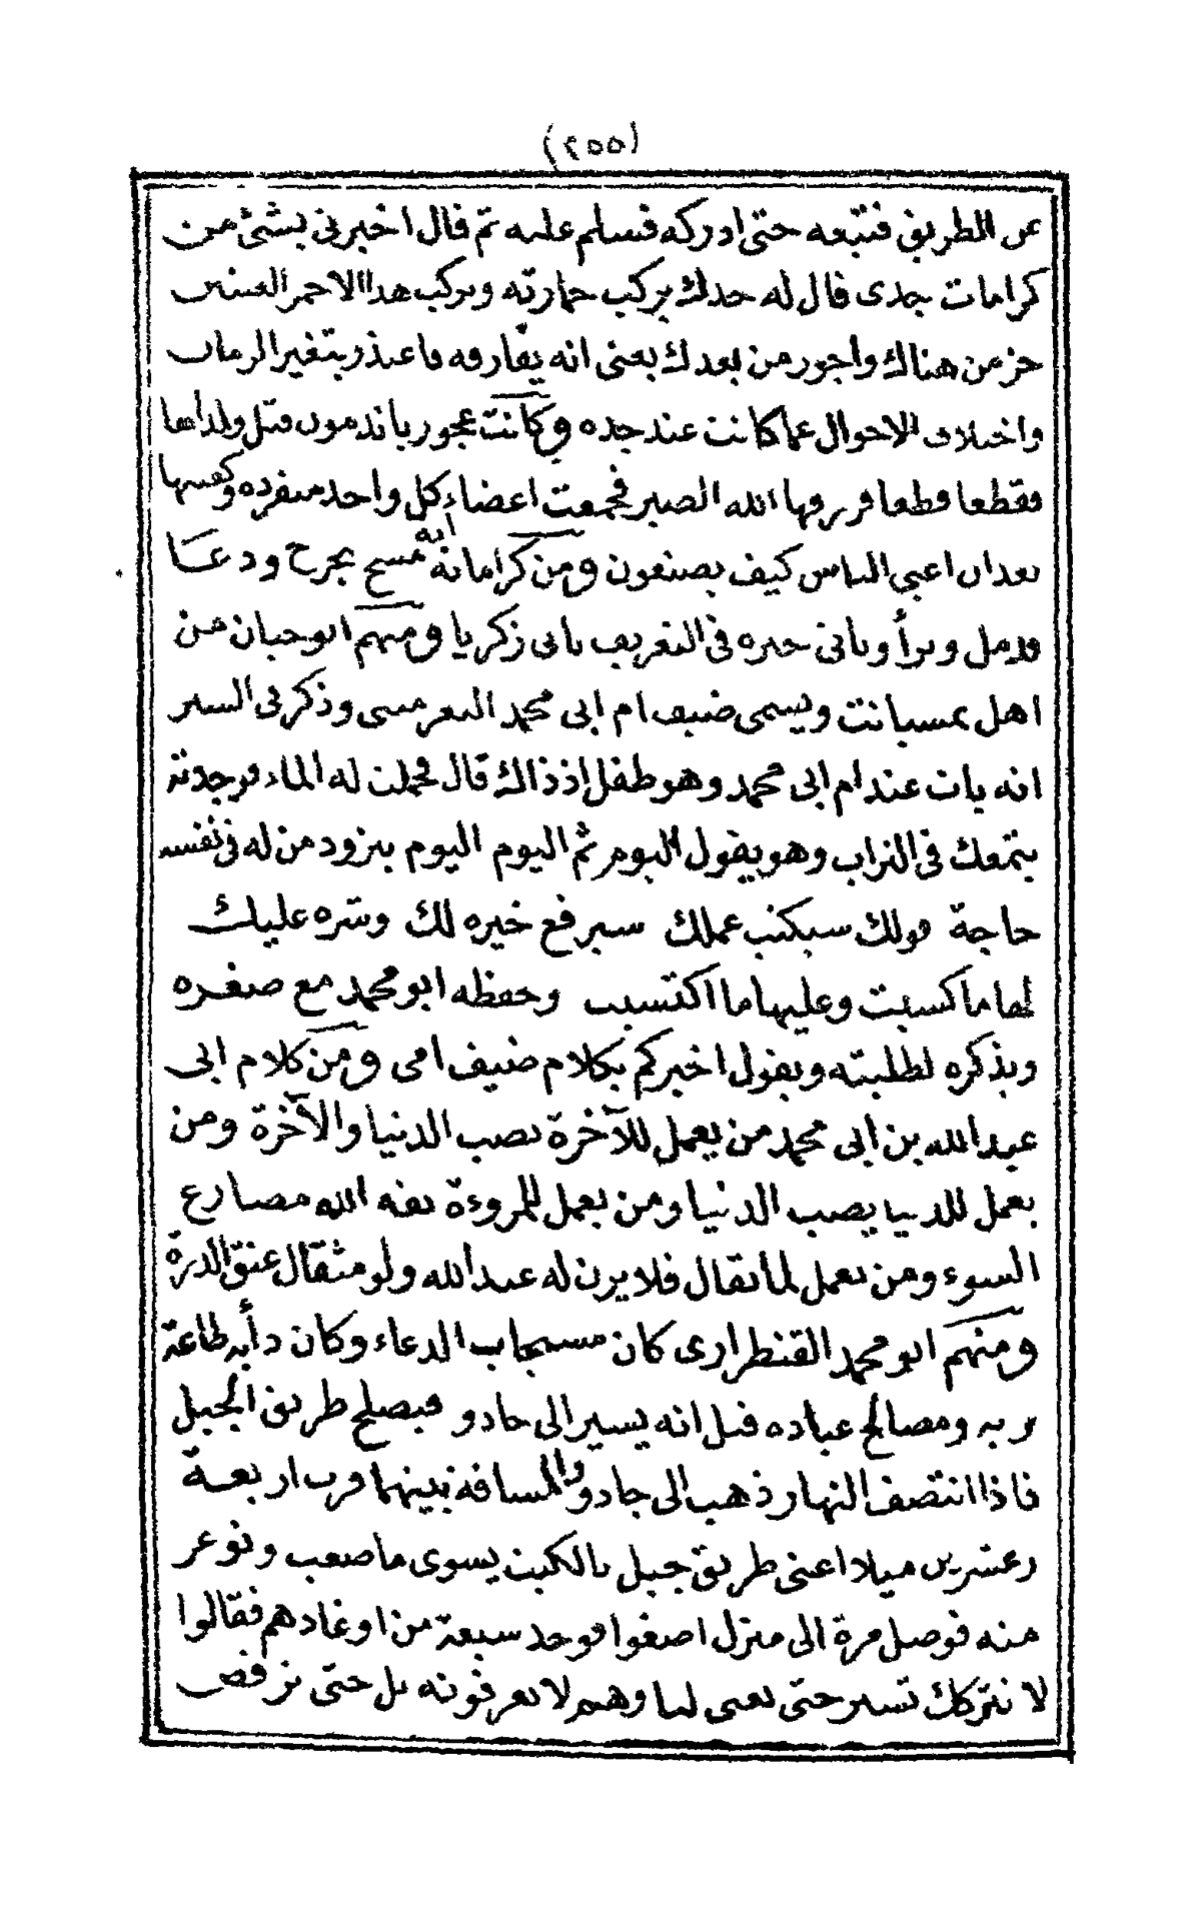 (٢٥٥)
عن الطريق فتبعه حتى ادركه فسلم عليه ثم قال اخبرنى بشئ من
كرامات جدى قال له جدك يركب حمارته ويركب هذا الاحمر
من هناك واجوز من بعدك يعنى انه يفارقه فاعتذر بتغير الزمان
واختلاف الاحوال عما كانت عند جده وكانت عجوز باندمون قتل ولداها
فقطعا قطعا فرزقها الله الصبر فجمعت اعضاء كل واحد منفرده وكفنتها
بعد ان اعيى الناس كيف يصنعون ومن كراماته انه مسح بجرح ودعا
ويرأ وياتى خبره فى التعريف بابى زكريا ومنهم ابو حيان من
اهل ويسمى ضيف ام ابى محمد وذكر فى السير
انه بات عند ام ابى محمد وهو طفل اذ ذاك قال فحملت له الماء فوجدته
يتمعك فى التراب وهو يقول اليوم ثم اليوم اليوم يتزود من له فى نفسه
حاجة قولك سيكتب عملك سيرفع خيره لك وشره عليك
لها ما كسبت وعليها ما اكتسبت وحفظه ابو محمد مع صغره
ويذكره لطلبته ويقول اخبركم بكلام ضيف امى ومن كلام ابى
عبد الله بن ابى محمد من يعمل للآخرة يصب الدنيا والآخرة ومن
يعمل للدنيا يصب الدنيا ومن يعمل للمروءة يقه الله مصارع
السوء ومن يعمل لما يقال فلا يزن له عبد الله ولو مثقال عنق الذرة
ومنهم ابو محمد القنطرارى كان مستجاب الدعاء وكان دأبه طاعة
ربه ومصالح عباده قيل انه يسير الى جادو فيصلح طريق الجبل
فاذا انتصف النهار ذهب الى جادو والمسافة بينهما قرب اربعة
وعشرين ميلا اعنى طريق جبل يسوى ما صعب وتوعر
منه فوصل مرة الى منزل فوجد سبعة من اوغادهم فقالوا
لا نتركك تسير حتى تغنى لنا وهم لا يعرفونه بل حتى ترقص